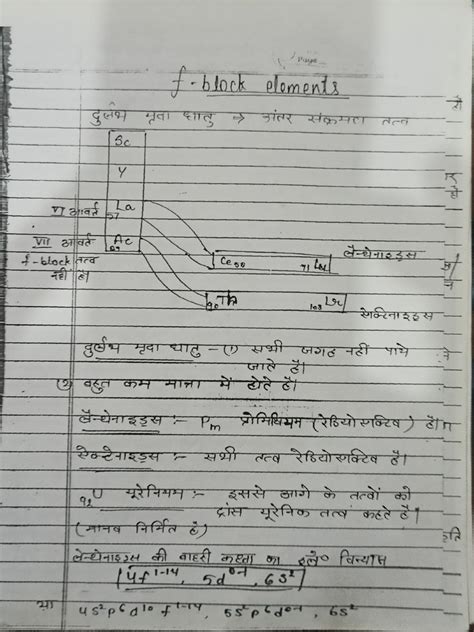 f-block elements
दुर्लभ मृदा धातु → अंतर संक्रमण तत्व
Sc
Y
VI आवर्त La 57
VII आवर्त Ac 89
f-block तत्व
नही है।
Ce 58 71 Lu लैन्थेनाइड्स
90 Th 103 Lr ऐक्टिनाइड्स
दुर्लभ मृदा धातु - (1) सभी जगह नहीं पाये
जाते है।
(2) बहुत कम मात्रा में होते है।
लैन्थेनाइड्स :- Pm प्रोमिथियम (रेडियोएक्टिव) है।
ऐक्टेनाइड्स :- सभी तत्व रेडियोएक्टिव है।
92 U यूरेनियम :- इससे आगे के तत्वों को
ट्रांस यूरेनिक तत्व कहते है।
(मानव निर्मित है)
लैन्थेनाइड्स की बाहरी कक्षा का इले० विन्यास
[4f1-14, 5d0-1, 6s2]
या 4s2p6d10 f1-14, 5s2p6d0-1, 6s2